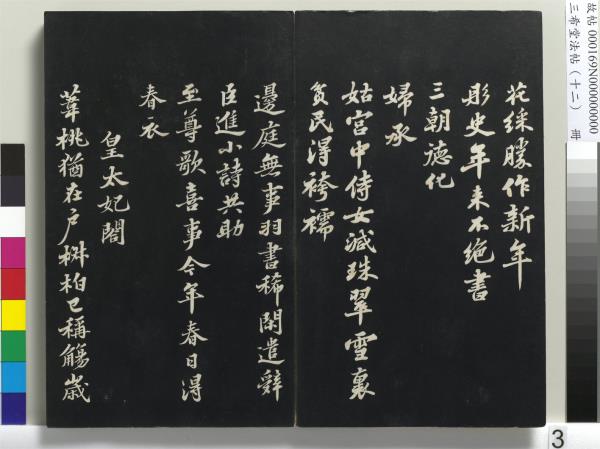 故帖 000169N000000000
三希堂法帖（十二） 冊
花綵勝作新年
彤史年來不絕書
三朝德化
婦承
姑宮中侍女減珠翠雪裏
貧民得袴襦
邊庭無事羽書稀閑遣辭
臣進小詩共助
至尊歌喜事今年春日得
春衣
皇太妃閣
葦桃猶在戶椒柏已稱觴歲
3